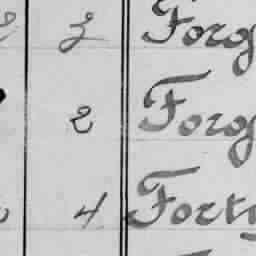 3 Forg
2 Forg
4 Forty